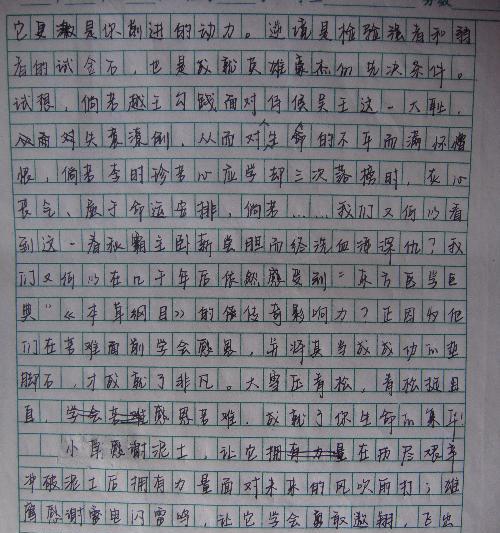 它更是你前进的动力。逆境是检验强者和弱
者的试金石，也是成就英雄豪杰的先决条件。
试想，倘若越王勾践面对侍候吴王这一大耻，
从而对失衰溃倒，从而对生命的不平而满怀憎
恨，倘若李时珍苦心应学却三次落榜时，灰心
丧气、屈于命运安排，倘若……我们又何以看
到这一春秋霸主卧薪尝胆而终洗血海深仇？我
们又何以在几千年后依然感受到“东方医学巨
典”《本草纲目》的传奇影响力？正因为他
们在苦难面前学会感恩，并将其当成成功的垫
脚石，才成就了非凡。大雪压青松，青松挺且
直，学会苦难感恩苦难，成就了你生命的集
小草感谢泥土，让它拥有力量在历尽艰辛
冲破泥土后拥有力量面对未来的风吹雨打；雄
鹰感谢雷电闪雷鸣，让它学会勇敢翱翔，飞出